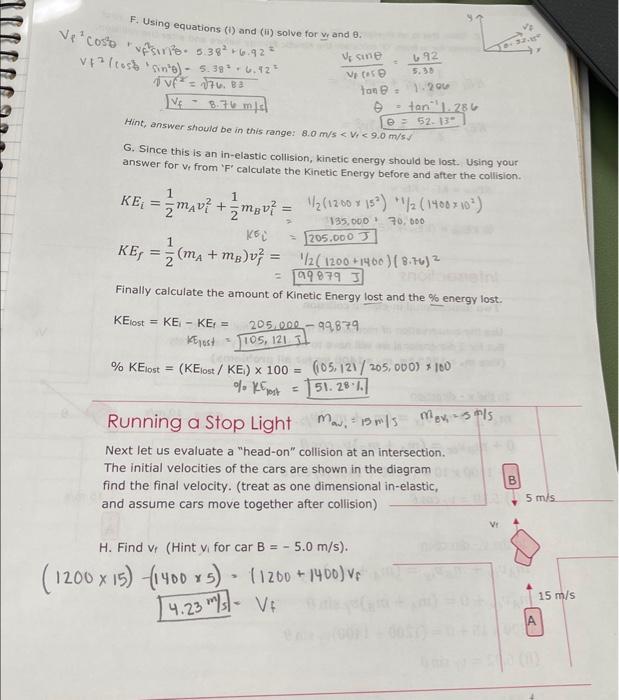 F. Using equations (i) and (ii) solve for vf and θ.
Vf²cos²θ + Vf²sin²θ = 5.38² + 6.92²
Vf²(cos²θ + sin²θ) = 5.38² + 6.92²
√Vf² = √76.83
Vf = 8.76 m/s
Vf sinθ / Vf cosθ = 6.92 / 5.38
tanθ = 1.286
θ = tan⁻¹ 1.286
θ = 52.13°
y
x
Vf
Hint, answer should be in this range: 8.0 m/s < Vf < 9.0 m/s ✓
G. Since this is an in-elastic collision, kinetic energy should be lost. Using your
answer for vf from 'F' calculate the Kinetic Energy before and after the collision.
KEi = 1/2 mAvi² + 1/2 mBvi² = 1/2(1200 × 15²) + 1/2(1400 × 10²)
= 135,000 + 70,000
KEi = 205,000 J
KEf = 1/2 (mA + mB)vf² = 1/2(1200 + 1400)(8.76)²
= 99879 J
Finally calculate the amount of Kinetic Energy lost and the % energy lost.
KElost = KEi − KEf = 205,000 − 99,879
KElost = 105,121 J
% KElost = (KElost / KEi) x 100 = (105,121/205,000) × 100
% KElost = 51.28%
Running a Stop Light
mAVi = 15 m/s
mBVi = 5 m/s
Next let us evaluate a "head-on" collision at an intersection.
The initial velocities of the cars are shown in the diagram
find the final velocity. (treat as one dimensional in-elastic,
and assume cars move together after collision)
B
5 m/s
Vf
H. Find vf (Hint vi for car B = - 5.0 m/s).
(1200 × 15) − (1400 × 5) = (1200 + 1400)Vf
4.23 m/s = Vf
15 m/s
A